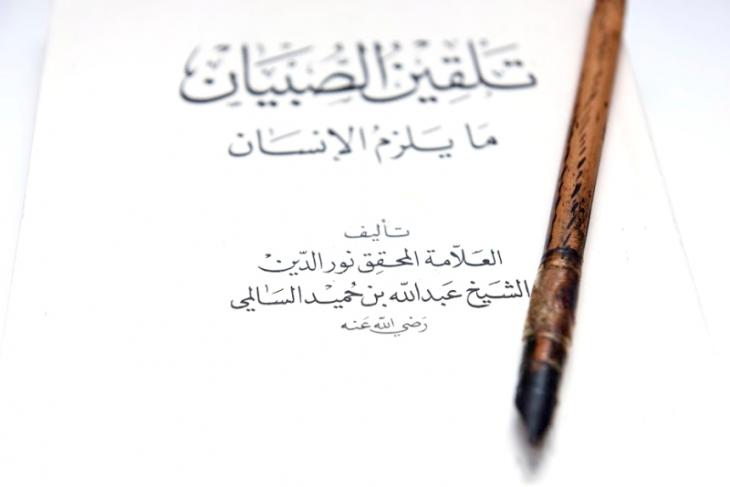 تَلقِينُ الصِّبيَان
مَا يَلزمُ الإنسَان
تأليف
العَلاّمة المحقِق نور الدّين
الشيَخ عَبدالله بن حُميد السَالمي
رَضي الله عَنه